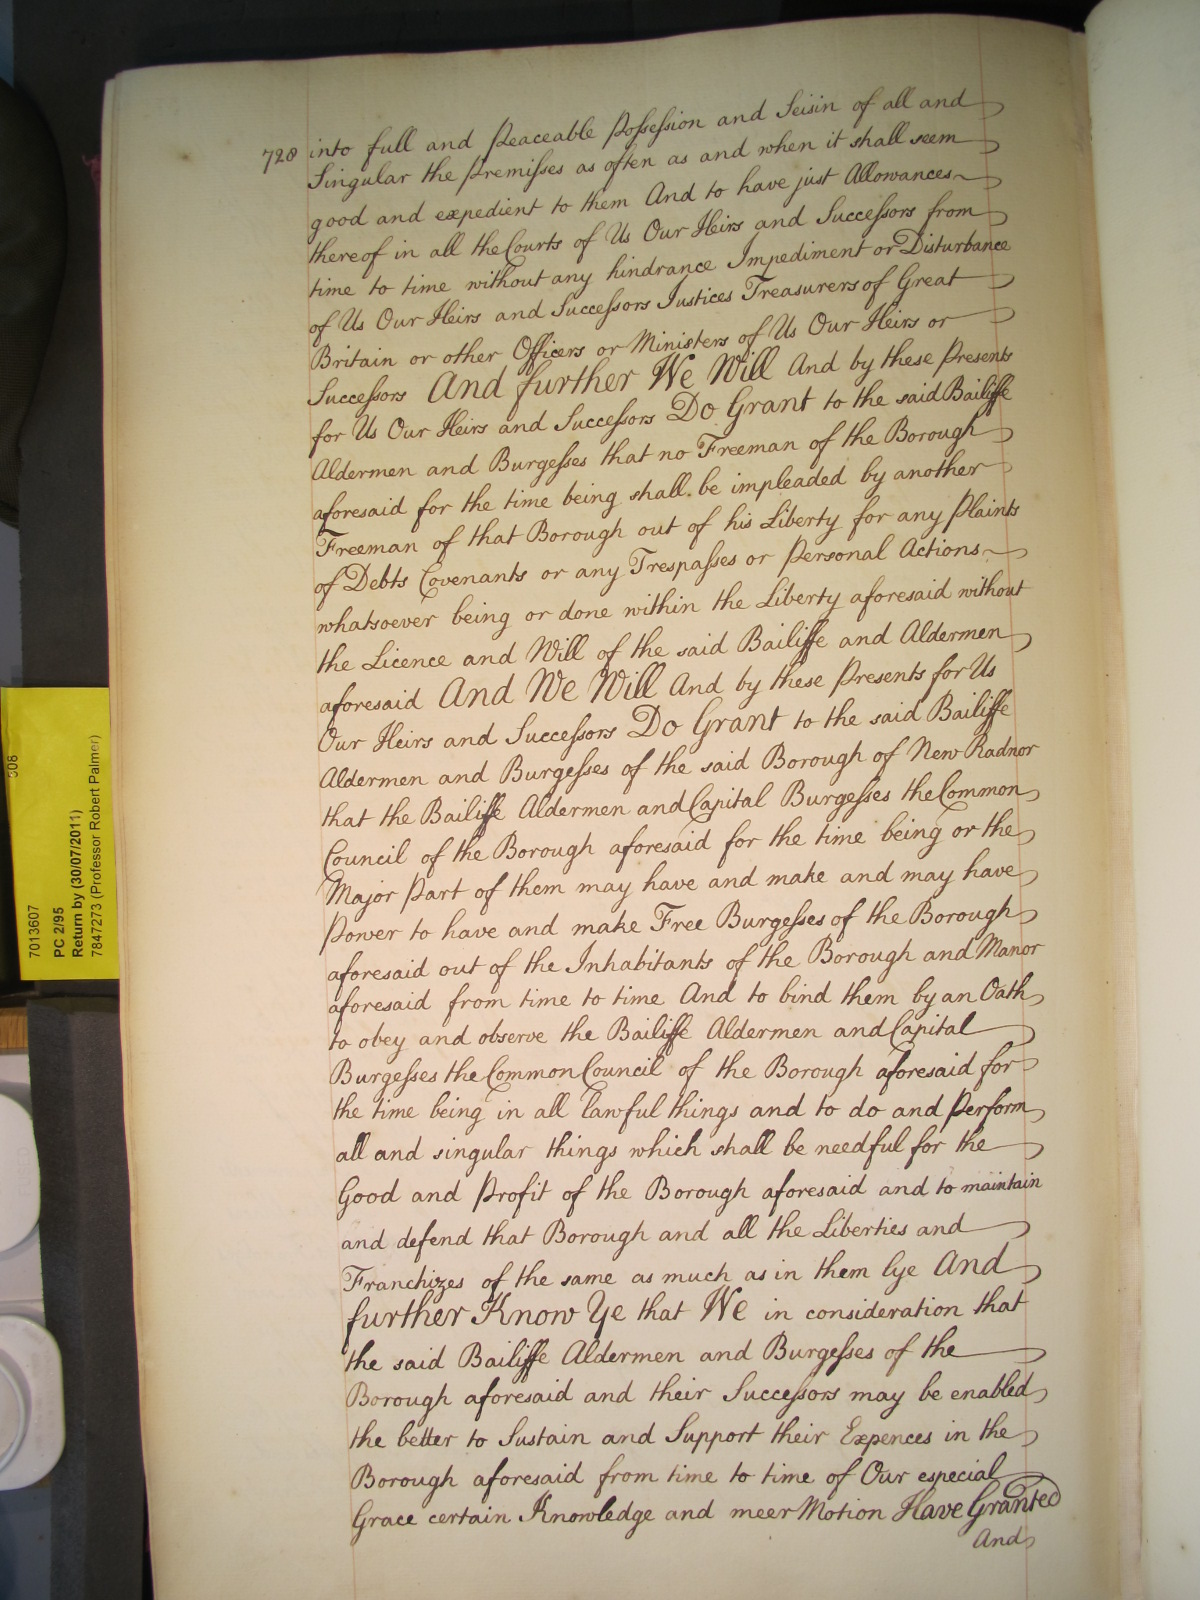 728 into full and Peaceable Possession and Seisin of all and
Singular the Premisses as often as and when it shall seem
good and expedient to them And to have just Allowances
thereof in all the Courts of Us Our Heirs and Successors from
time to time without any hindrance Impediment or Disturbance
of Us Our Heirs and Successors Justices Treasurers of Great
Britain or other Officers or Ministers of Us Our Heirs or
Successors And further We Will And by these Presents
for Us Our Heirs and Successors Do Grant to the said Bailiffe
Aldermen and Burgesses that no Freeman of the Borough
aforesaid for the time being shall be impleaded by another
Freeman of that Borough out of his Liberty for any Plaints
of Debts Covenants or any Trespasses or Personal Actions
whatsoever being or done within the Liberty aforesaid without
the Licence and Will of the said Bailiffe and Aldermen
aforesaid And We Will And by these Presents for Us
Our Heirs and Successors Do Grant to the said Bailiffe
Aldermen and Burgesses of the said Borough of New Radnor
that the Bailiffe Aldermen and Capital Burgesses the Common
Council of the Borough aforesaid for the time being or the
Major Part of them may have and make and may have
Power to have and make Free Burgesses of the Borough
aforesaid out of the Inhabitants of the Borough and Manor
aforesaid from time to time And to bind them by an Oath
to obey and observe the Bailiffe Aldermen and Capital
Burgesses the Common Council of the Borough aforesaid for
the time being in all lawful things and to do and Perform
all and singular things which shall be needful for the
Good and Profit of the Borough aforesaid and to maintain
and defend that Borough and all the Liberties and
Franchizes of the same as much as in them lye And
further Know Ye that We in consideration that
the said Bailiffe Aldermen and Burgesses of the
Borough aforesaid and their Successors may be enabled
the better to Sustain and Support their Expences in the
Borough aforesaid from time to time of Our especial
Grace certain Knowledge and meer Motion Have Granted
And
7013607
PC 2/95
Return by (30/07/2011)
7847273 (Professor Robert Palmer)